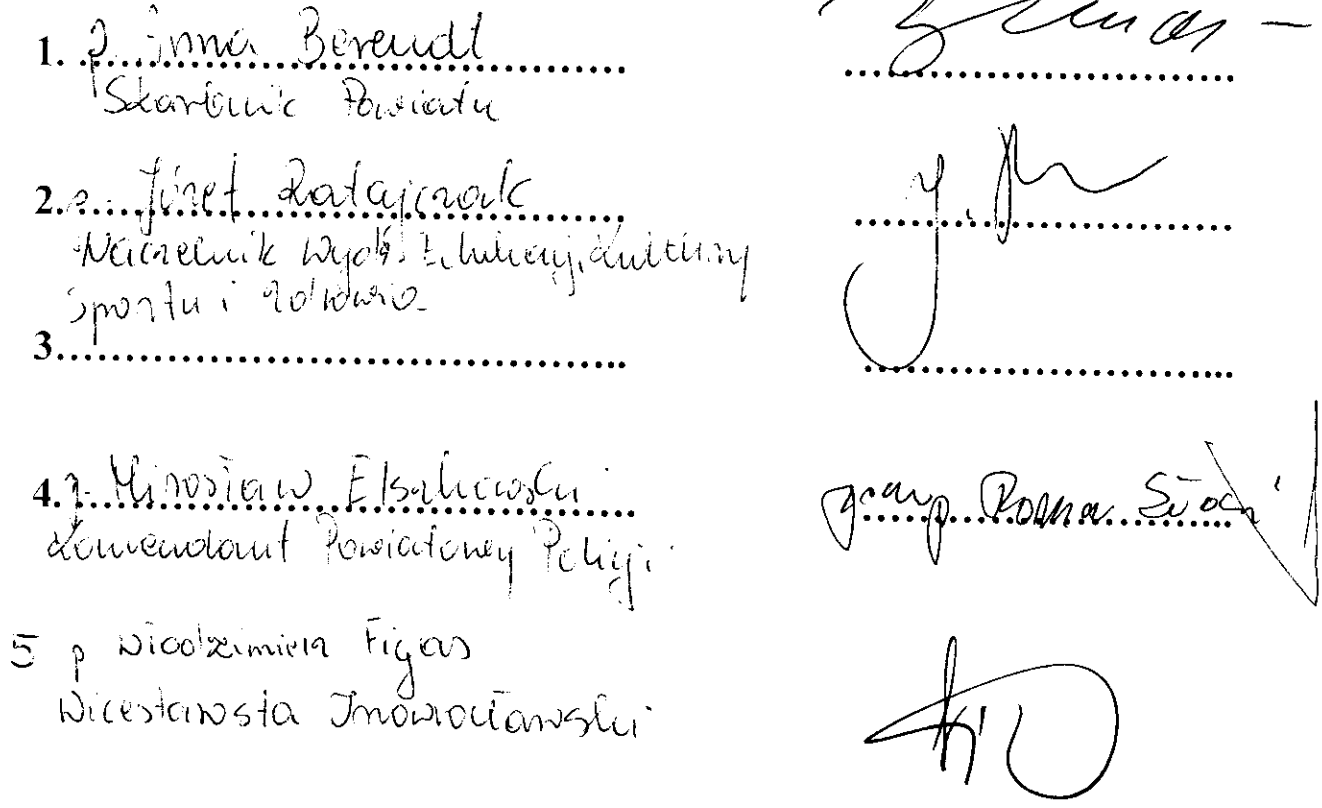 1. p. Anna Berendt
Skarbnik Powiatu
2. p. Józef Ratajczak
Naczelnik Wydz. Edukacji, Kultury
Sportu i Zdrowia
3.
4. p. Mirosław Elszkowski
Komendant Powiatowej Policji
5 p Włodzimierz Figas
Wicestarosta Inowrocławski